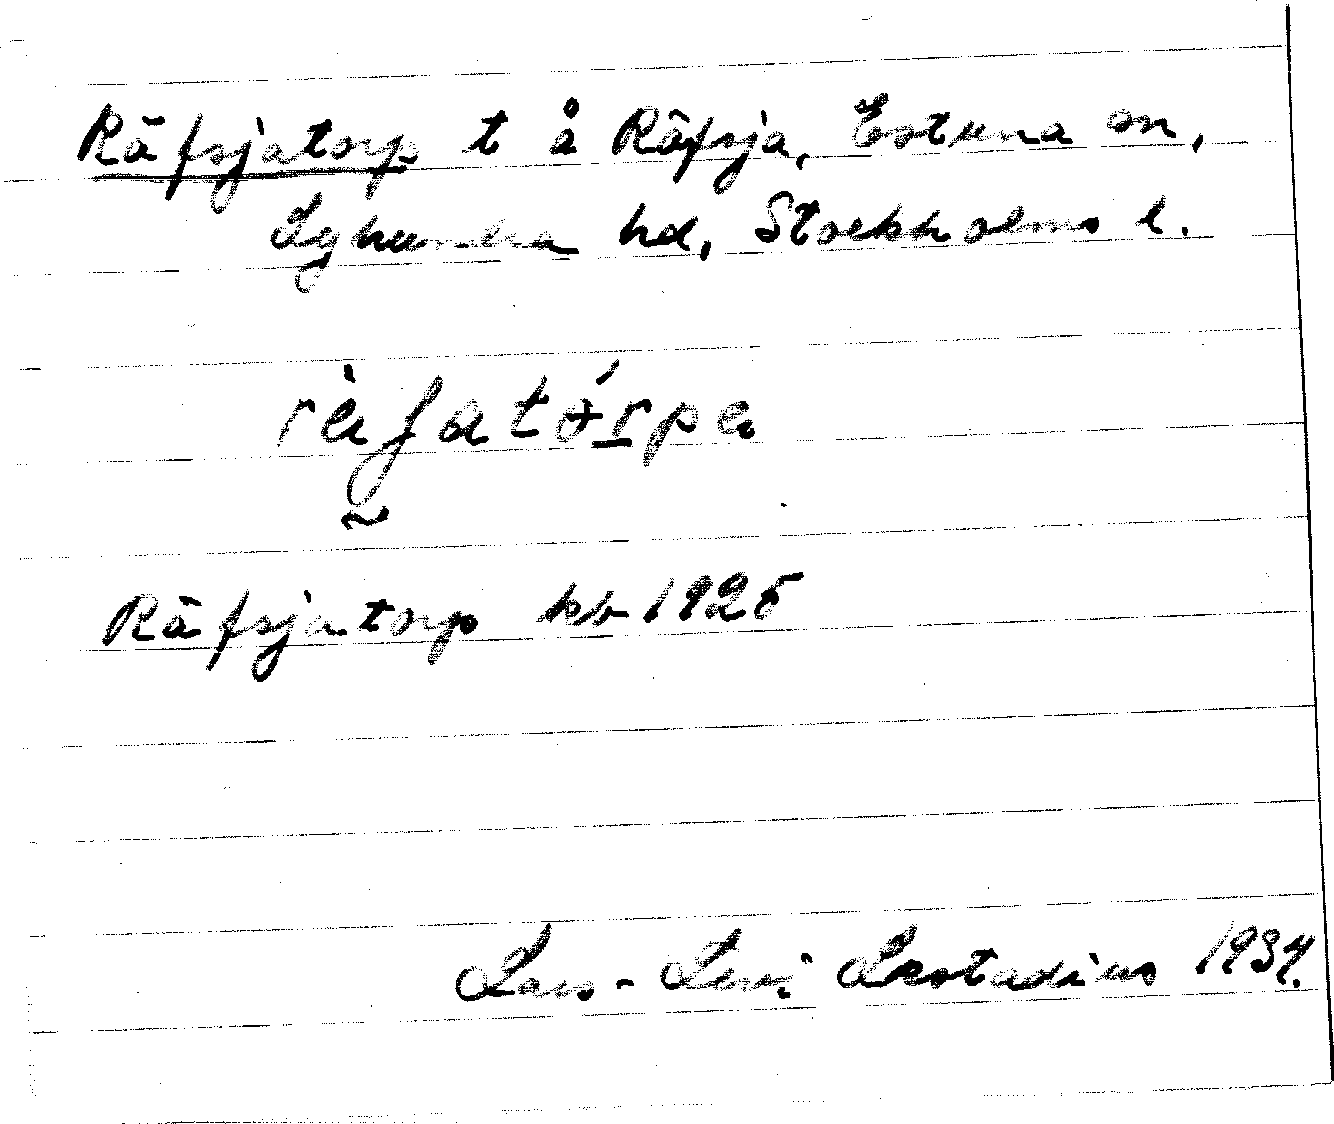 Räfsjatorp t å Räfsja, Estuna sn,
Lyhundra hd, Stockholms l.
räfatórpa
Räfsjatorp kb 1925
Lars-Levi Læstadius 1934.